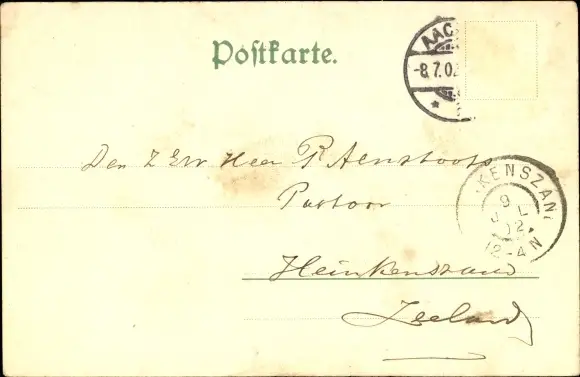 Postkarte.
AAC
-8.7.02
Den Z Erw Heer P. Aenstoots
Pastoor
Heinkenszand
Zeeland
KENSZAN
9
JL
02
12-4N